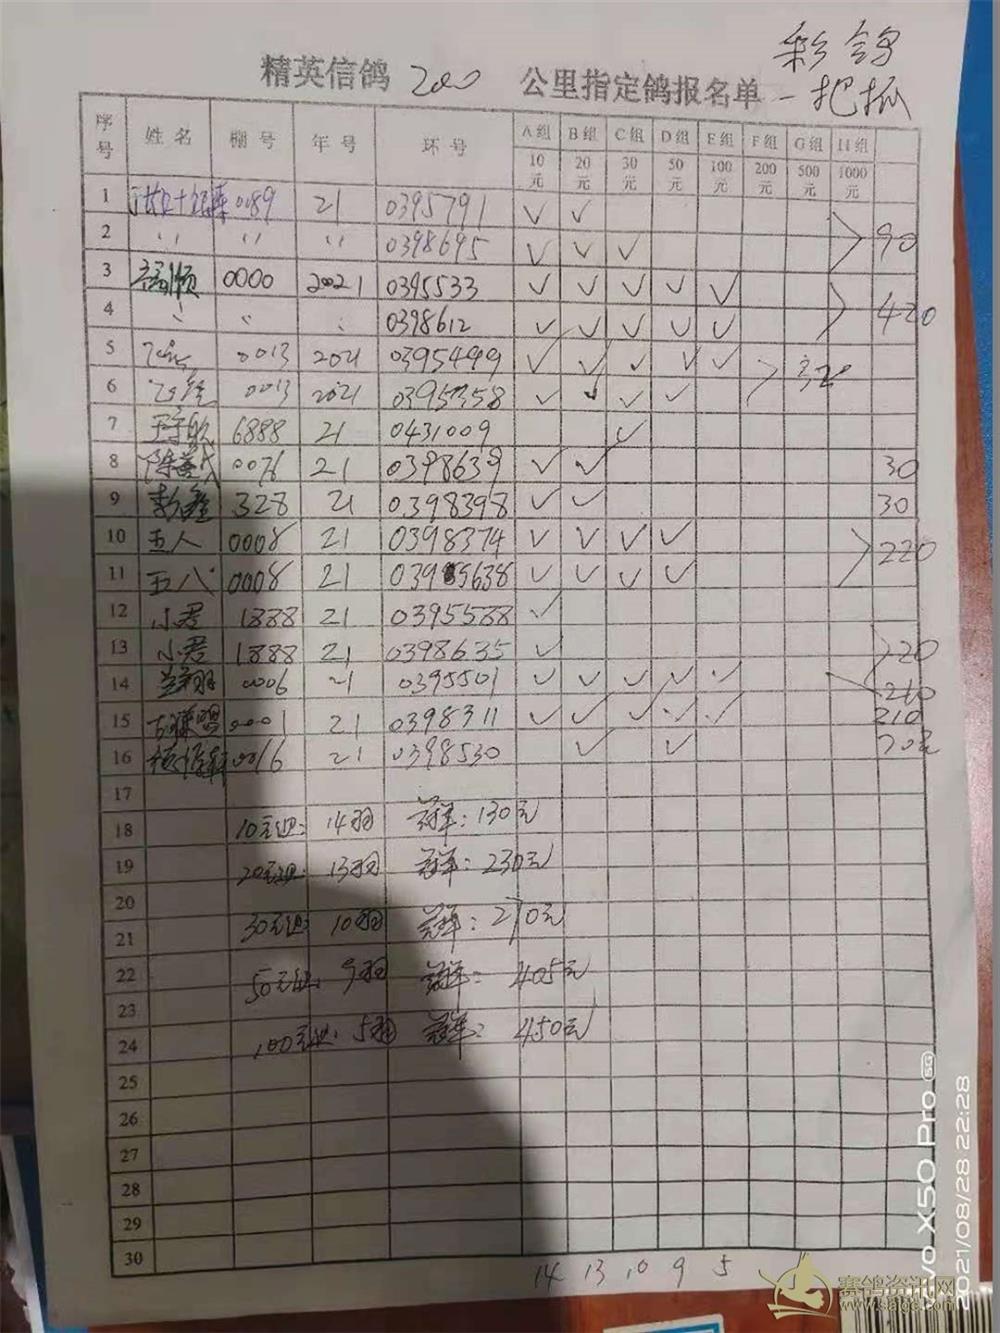 彩鸽
一把抓
精英信鸽 200 公里指定鸽报名单
序号 姓名 棚号 年号 环号 A组 B组 C组 D组 E组 F组 G组 H组
10元 20元 30元 50元 100元 200元 500元 1000元
1 0089 21 0395791 ✓ ✓
2 〃 〃 〃 0398695 ✓ ✓ ✓ 90
3 0000 2021 0395533 ✓ ✓ ✓ ✓ ✓
4 〃 〃 〃 0398612 ✓ ✓ ✓ ✓ ✓ 420
5 0013 2021 0395499 ✓ ✓ ✓ ✓ ✓ 320
6 0013 2021 0395358 ✓ ✓ ✓ ✓
7 6888 21 0431009 ✓
8 0076 21 0398639 ✓ ✓ 30
9 彭鑫 328 21 0398398 ✓ ✓ 30
10 五人 0008 21 0398374 ✓ ✓ ✓ ✓ 220
11 五八 0008 21 0395638 ✓ ✓ ✓ ✓
12 小君 1888 21 0395588 ✓
13 小君 1888 21 0398635 ✓ 20
14 0006 21 0395501 ✓ ✓ ✓ ✓ ✓ 210
15 0001 21 0398311 ✓ ✓ ✓ ✓ ✓ 210
16 0016 21 0398530 ✓ ✓ 70元
17
18 10元组: 14羽 冠军: 130元
19 20元组: 13羽 冠军: 230元
20
21 30元组: 10羽 冠军: 270元
22 50元组: 9羽 冠军: 405元
23
24 100元组: 5羽 冠军: 450元
25
26
27
28
29
30
14 13 10 9 5
vivo X50 Pro 5G
2021/08/28 22:28
赛鸽资讯网
www.saige.com